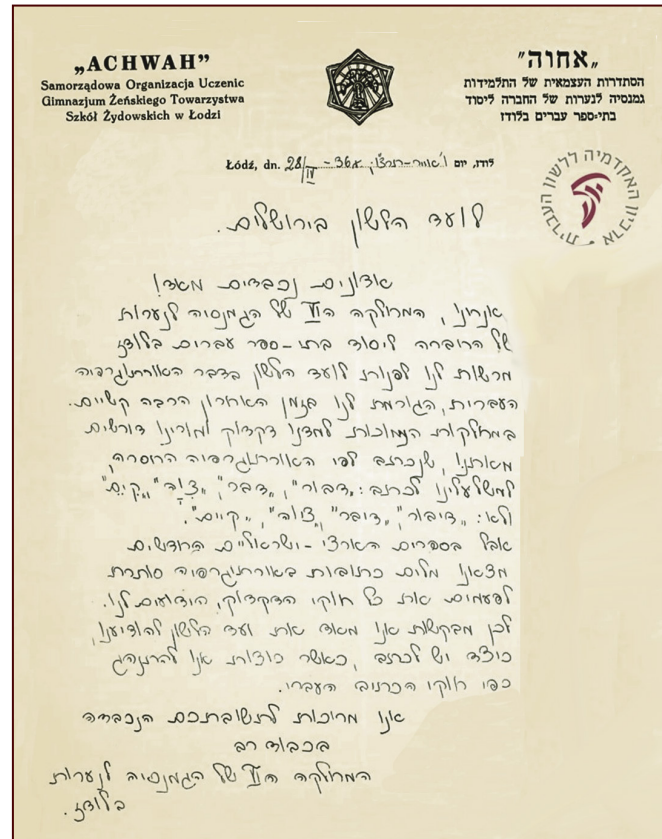 „ACHWAH”
Samorządowa Organizacja Uczenic
Gimnazjum Żeńskiego Towarzystwa
Szkół Żydowskich w Łodzi
„אחוה”
הסתדרות העצמאית של התלמידות
גמנסיה לנערות של החברה ליסוד
בתי-ספר עברים בלודז
Łódź, dn. 28/IV – 36 לודז, יום ו' אייר-תרצ"ו
ארכיון האקדמיה ללשון העברית
לועד הלשון בירושלים.
אדונים נכבדים מאד!
אנחנו, המחלקה הVI של הגמנסיה לנערות
של החברה ליסוד בתי-ספר עברים בלודז
מרשות לנו לפנות לועד הלשון בדבר האורתוגרפיה
העברית, הגורמת לנו בזמן האחרון הרבה קשיים.
במחלקות הנמוכות למדנו דקדוק ומורינו דורשים
מאתנו, שנכתב לפי האורתוגרפיה החסרה,
למשל עלינו לכתב: „דבור”, „דבר”, „צוה”, „קים”
ולא: „דיבור”, „דיבר”, „ציוה”, „קיים”.
אבל בספרים הארצי-ישראליים החדשים
מצאנו מלים כתובות באורתוגרפיה סותרת
לפעמים את כל חוקי הדקדוק, הידועים לנו.
לכן מבקשות אנו מאד את ועד הלשון להודיענו,
כיצד יש לכתב, כאשר רוצות אנו להתנהג
כפי חוקי הכתיב העברי.
אנו מחכות לתשובתכם הנכבדה
בכבוד רב
המחלקה הVI של הגמנסיה לנערות
בלודז.